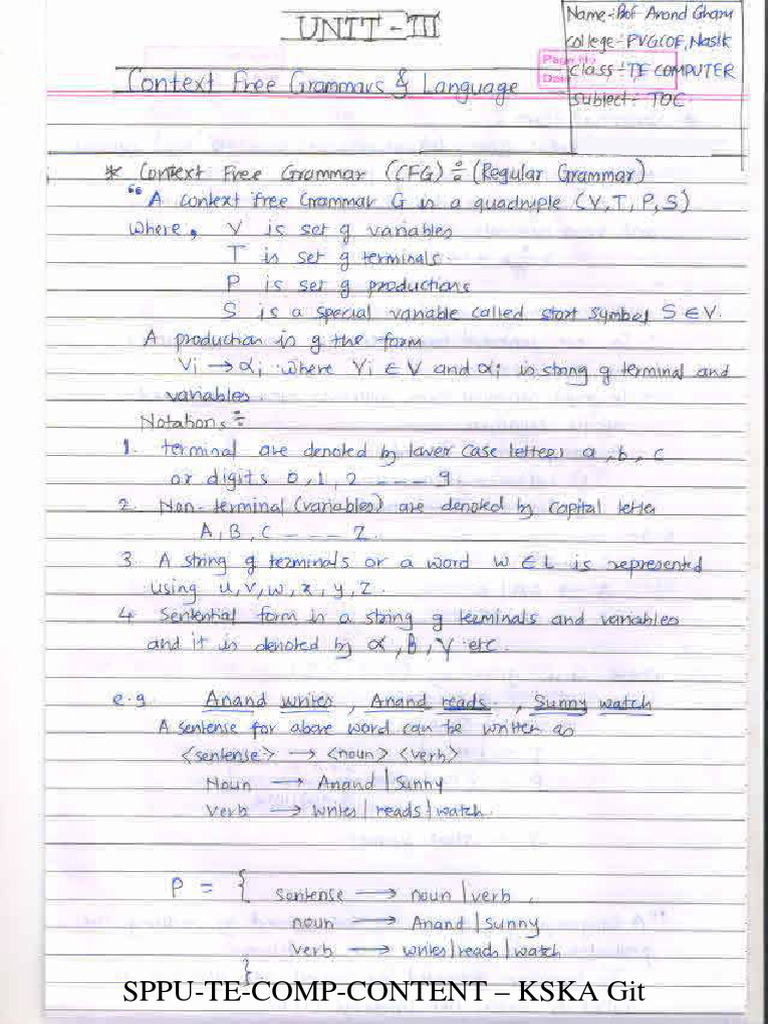 UNIT - III
Name:- Prof Anand Gharu
college:- PVGCOE, Nasik
class:- TE COMPUTER
subject:- TOC
Context Free Grammars & Language
* Context Free Grammar (CFG) ÷ (Regular Grammar)
" A context free Grammar G is a quadruple (V, T, P, S)
Where, V is set of variables
T is set of terminals.
P is set of productions
S is a special variable called start symbol S ∈ V.
A production is of the form
Vi → αi where Vi ∈ V and αi is string of terminal and
variables.
Notations ÷
1. terminal are denoted by lower case letters a, b, c
or digits 0, 1, 2 ---- 9.
2. Non-terminal (variables) are denoted by capital letter
A, B, C ---- Z.
3. A string of terminals or a word w ∈ L is represented
using u, v, w, x, y, z.
4. Sentential form is a string of terminals and variables
and it is denoted by α, β, γ etc.
e.g. Anand writes, Anand reads, Sunny watch
A sentense for above word can be written as
<sentense> → <noun> <verb>
Noun → Anand | Sunny
Verb → writes | reads | watch.
P = { sentense → noun | verb,
noun → Anand | Sunny
verb → writes | reads | watch
}.
SPPU-TE-COMP-CONTENT – KSKA Git